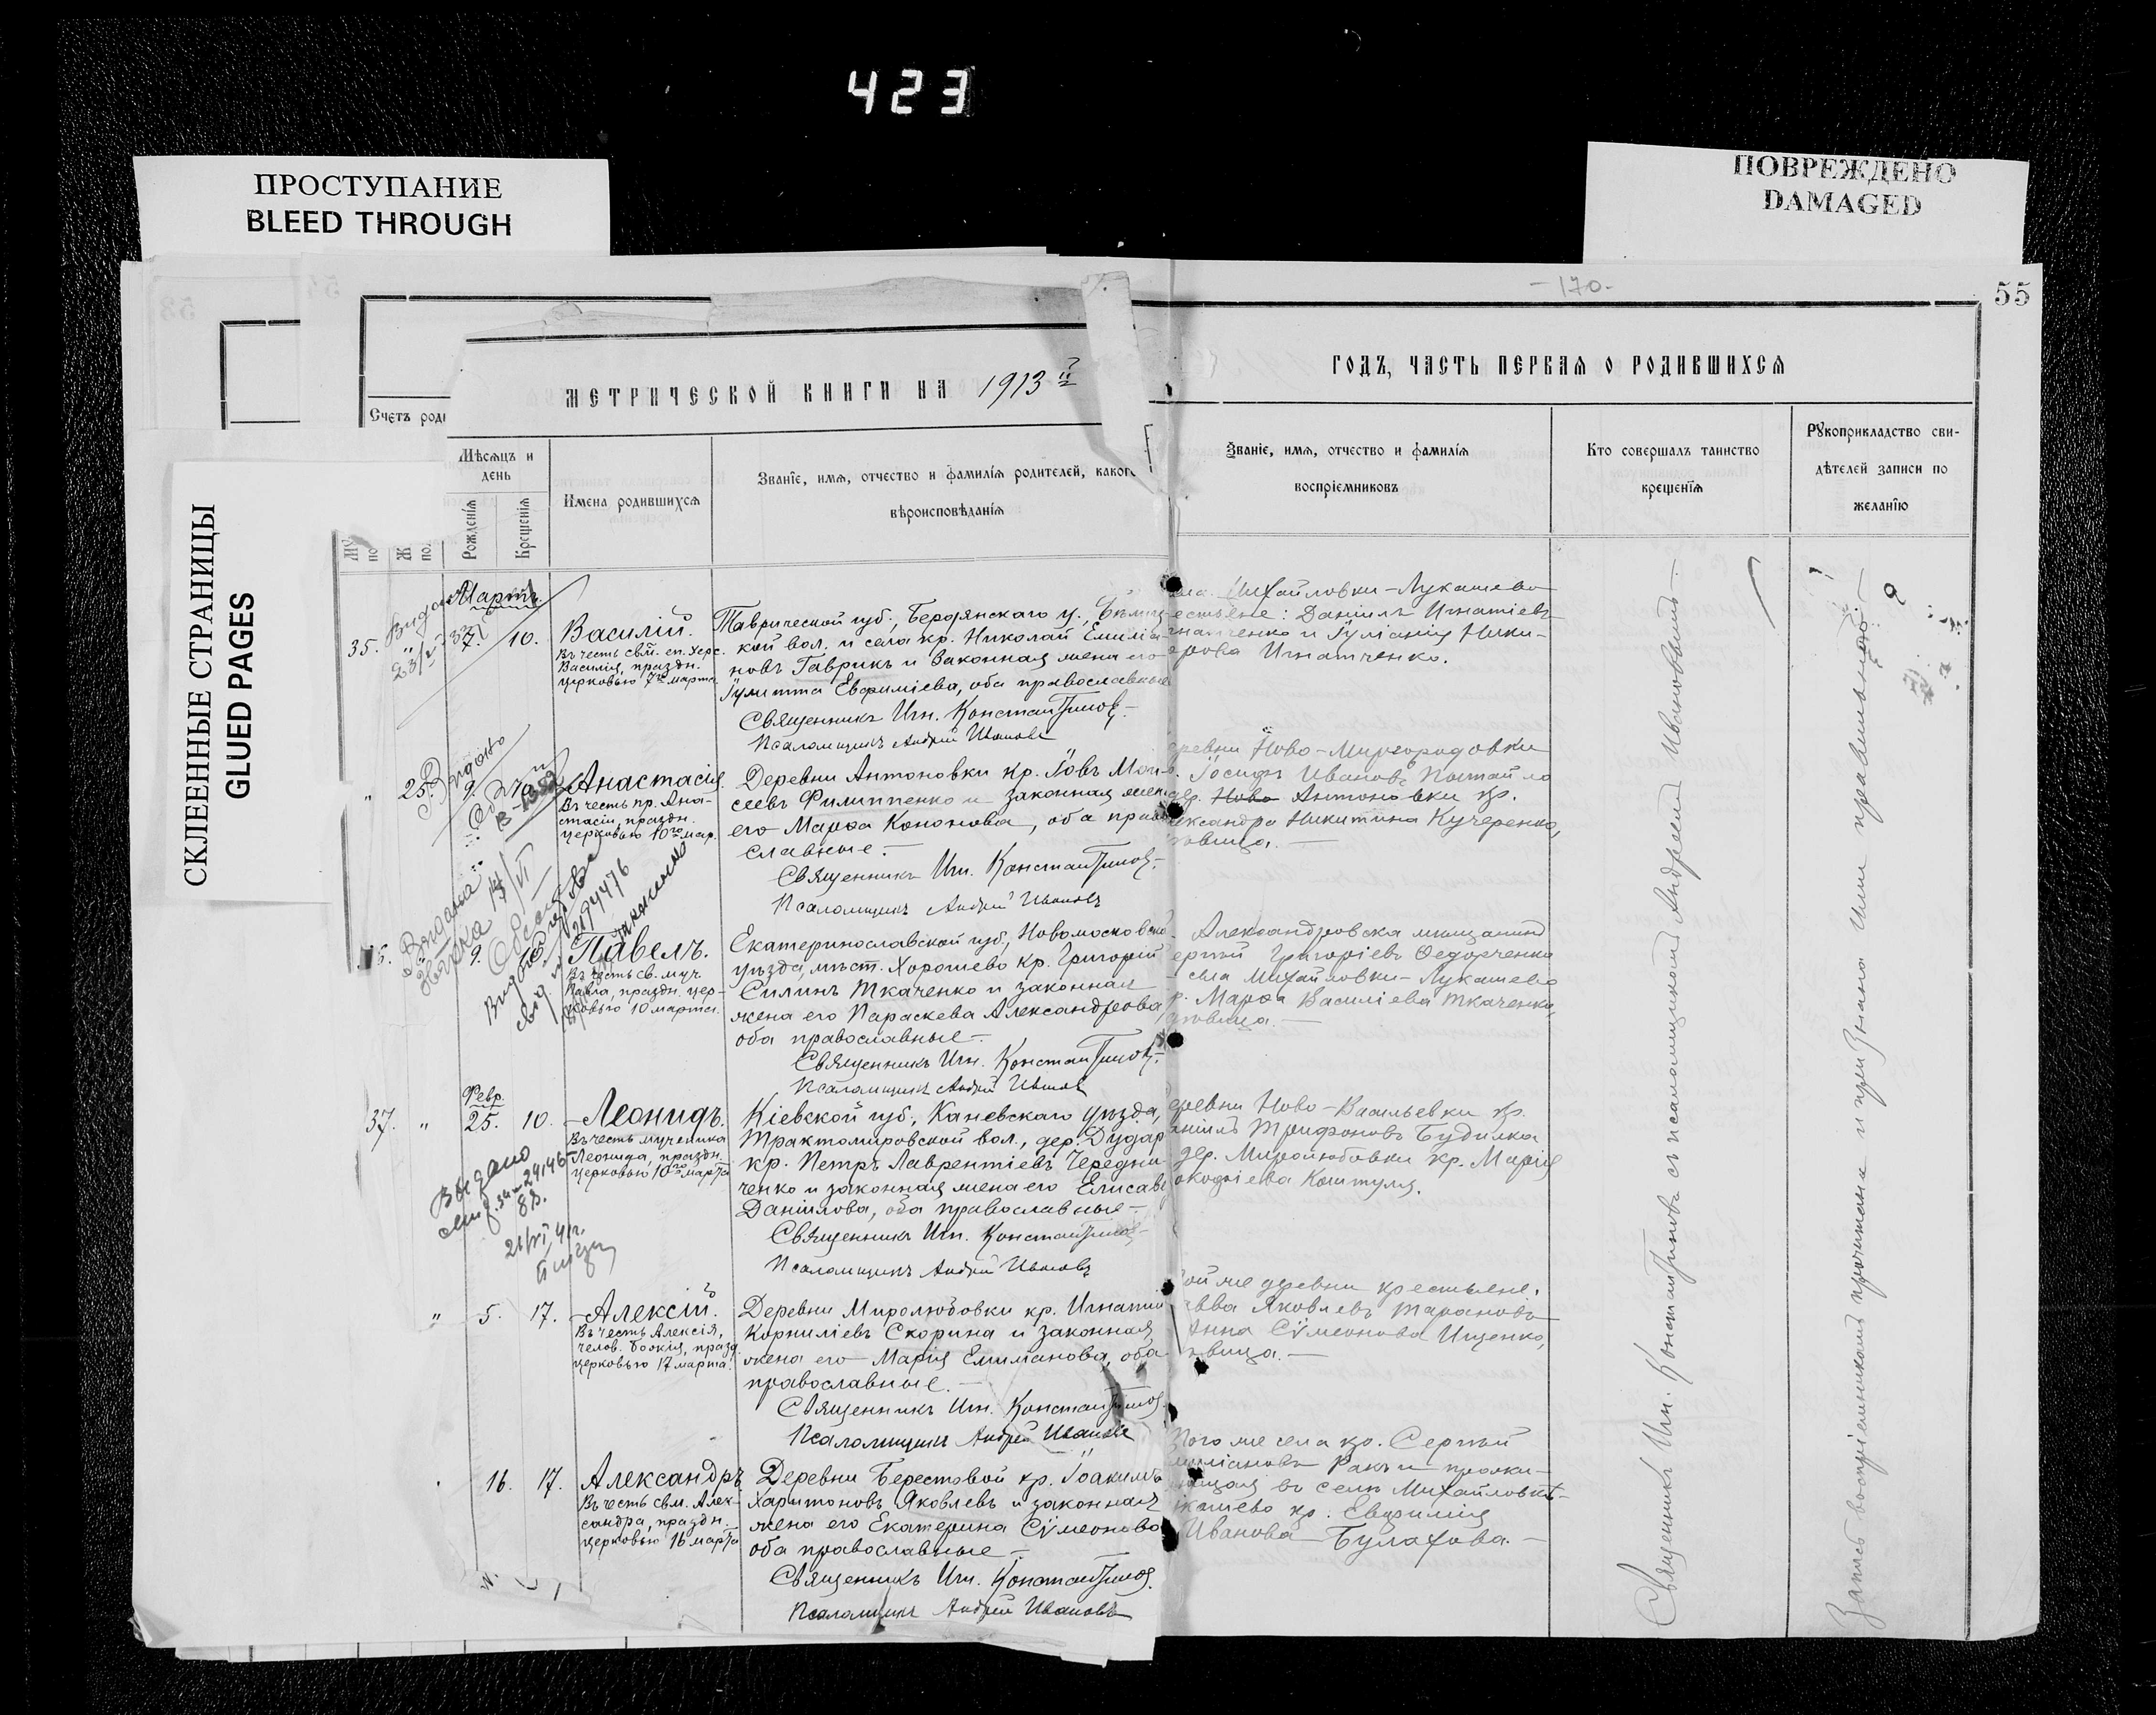 423
ПРОСТУПАНИЕ
BLEED THROUGH
ПОВРЕЖДЕНО
DAMAGED
СКЛЕЕННЫЕ СТРАНИЦЫ
GLUED PAGES
-170-
55
МЕТРИЧЕСКОЙ КНИГИ НА 1913
ГОДЪ, ЧАСТЬ ПЕРВАЯ О РОДИВШИХСЯ
Счетъ
Мѣсяцъ и
день
Рожденія
Крещенія
Имена родившихся
Званіе, имя, отчество и фамилія родителей, какого
вѣроисповѣданія
Званіе, имя, отчество и фамилія
воспріемниковъ
Кто совершалъ таинство
крещенія
Рукоприкладство сви-
дѣтелей записи по
желанію
Мартъ
35. " 7. 10.
Василій.
Въ честь свщ. еп. Херс.
Василія, праздн.
церковью 7го марта.
Таврической губ., Бердянскаго у.,
кой вол. и села кр. Николай Емиліа
новъ Гаврикъ и законная жена его
Іулитта Евфиміева, оба православные
Священникъ Игн. Константиновъ
Псаломщикъ Андрей Ивановъ
Михайловки-Лукашево
естьяне: Даніилъ Игнатіевъ
гнатченко и Іуліанія Ники-
форова Игнатченко.
" 25. 9. 10
Анастасія.
Въ честь пр. Ана-
стасіи, праздн.
церковью 10го мар.
Деревни Антоновки кр. Іовъ Мои-
сеевъ Филиппенко и законная жена
его Марѳа Кононова, оба право
славные.
Священникъ Игн. Константиновъ
Псаломщикъ Андрей Ивановъ
еревни Ново-Миргородовки
Іосифъ Ивановъ
дер. Ново Антоновки кр.
ександра Никитина Кучеренко,
ѣвица.
36. " 9. 10
Павелъ.
Въ честь св. муч.
Павла, праздн. цер-
ковью 10 марта.
Екатеринославской губ., Новомосковско
уѣзда, мѣст. Хорошево кр. Григорій
Силинъ Ткаченко и законная
жена его Параскева Александрова
оба православные
Священникъ Игн. Константиновъ
Псаломщикъ Андрей Ивановъ
Александровска мѣщанинъ
ергій Григоріевъ Федорченко
села Михайловки-Лукашево
р. Марѳа Василіева Ткаченко,
ѣвица.
Февр.
37. " 25. 10.
Леонидъ.
Въ честь мученика
Леонида, праздн.
церковью 10го марта
Кіевской губ., Каневскаго уѣзда,
Трактомировской вол., дер. Дудар
кр. Петръ Лаврентіевъ Чередни-
ченко и законная жена его Елисаве
Даніилова, оба православные
Священникъ Игн. Константиновъ
Псаломщикъ Андрей Ивановъ
еревни Ново-Васильевки кр.
аніилъ Трифоновъ Будилка
дер. Миролюбовки кр. Марія
Выдано
" 5. 17.
Алексій.
Въ честь Алексія,
челов. Божія, празд.
церковью 17 марта.
Деревни Миролюбовки кр. Игнатій
Корниліевъ Скорина и законная
жена его Марія Емиліанова, оба
православные.
Священникъ Игн. Константиновъ
Псаломщикъ Андрей Ивановъ
ой же деревни крестьяне:
авва Яковлевъ Тарановъ
Анна Сѵмеонова Ищенко,
ѣвица.
16. 17.
Александръ
Въ честь свм. Алек-
сандра, праздн.
церковью 16 марта
Деревни Берестовой кр. Іоакимъ
Харитоновъ Яковлевъ и законная
жена его Екатерина Сѵмеонова
оба православные
Священникъ Игн. Константиновъ
Псаломщикъ Андрей Ивановъ
того же села кр. Сергій
миліановъ Ракъ и прожи-
вающая въ селѣ Михайловкѣ-
укашево кр. Евфимія
Иванова Булахова.
Священникъ Игн. Константиновъ съ псаломщикомъ Андреемъ Ивановымъ
Запись воспріемникомъ прочитана и признана ими правильной